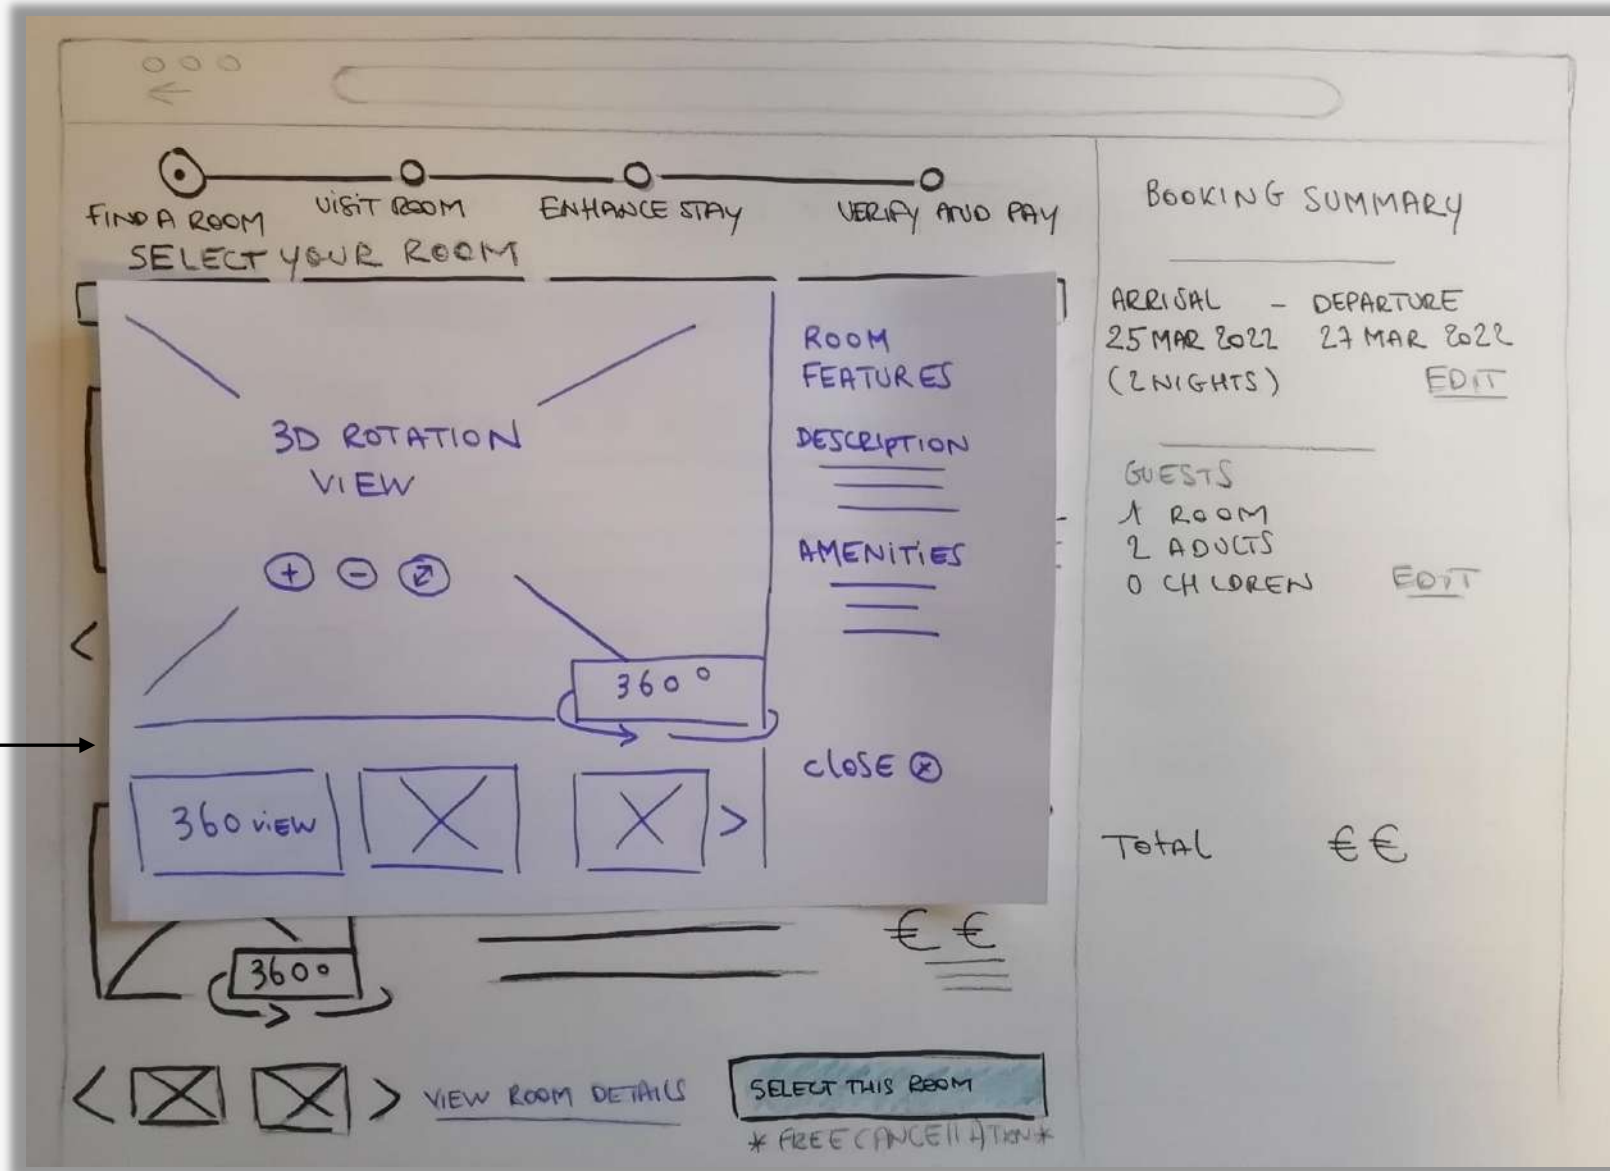 FIND A ROOM
VISIT ROOM
ENHANCE STAY
VERIFY AND PAY
SELECT YOUR ROOM
3D ROTATION
VIEW
+ -
360°
360 VIEW
>
ROOM
FEATURES
DESCRIPTION
AMENITIES
CLOSE ⓧ
<
360°
€ €
< >
VIEW ROOM DETAILS
SELECT THIS ROOM
* FREE CANCELLATION *
BOOKING SUMMARY
ARRIVAL - DEPARTURE
25 MAR 2022 27 MAR 2022
(2 NIGHTS) EDIT
GUESTS
1 ROOM
2 ADULTS
0 CHLDREN EDIT
TOTAL € €